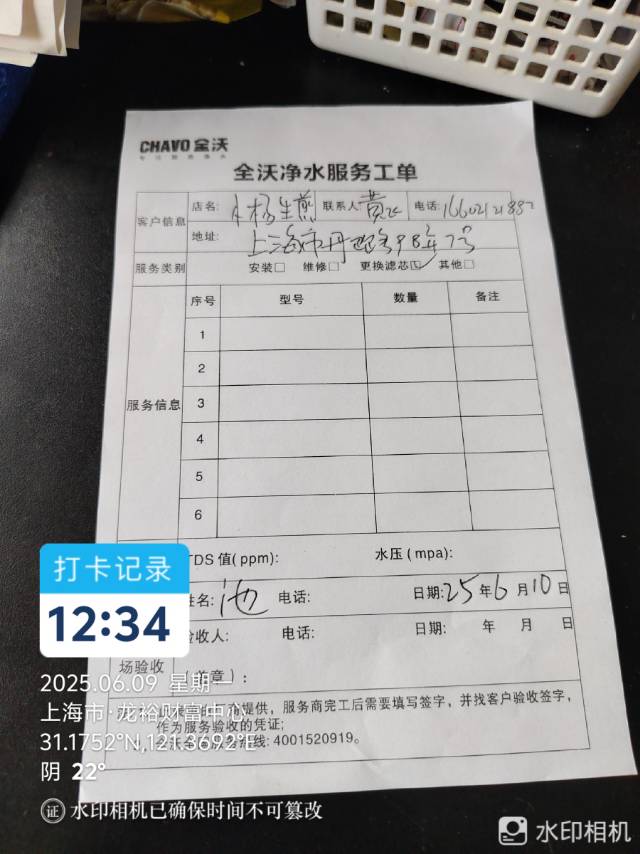 CHAVO 全沃
专注智能净水
全沃净水服务工单
客户信息
店名: 小杨生煎 联系人: 黄 电话: 16602121887
地址: 上海市丹 路98弄7号
服务类别 安装□ 维修□ 更换滤芯☑ 其他□
服务信息
序号 型号 数量 备注
1
2
3
4
5
6
TDS 值(ppm): 水压 (mpa):
姓名: 池 电话: 日期: 25 年 6 月 10 日
验收人: 电话: 日期: 年 月 日
场验收
(盖章):
提供，服务商完工后需要填写签字，并找客户验收签字，
作为服务验收的凭证;
热线: 4001520919。
打卡记录
12:34
2025.06.09 星期一
上海市·龙裕财富中心
31.1752°N,121.3692°E
阴 22°
证 水印相机已确保时间不可篡改
水印相机